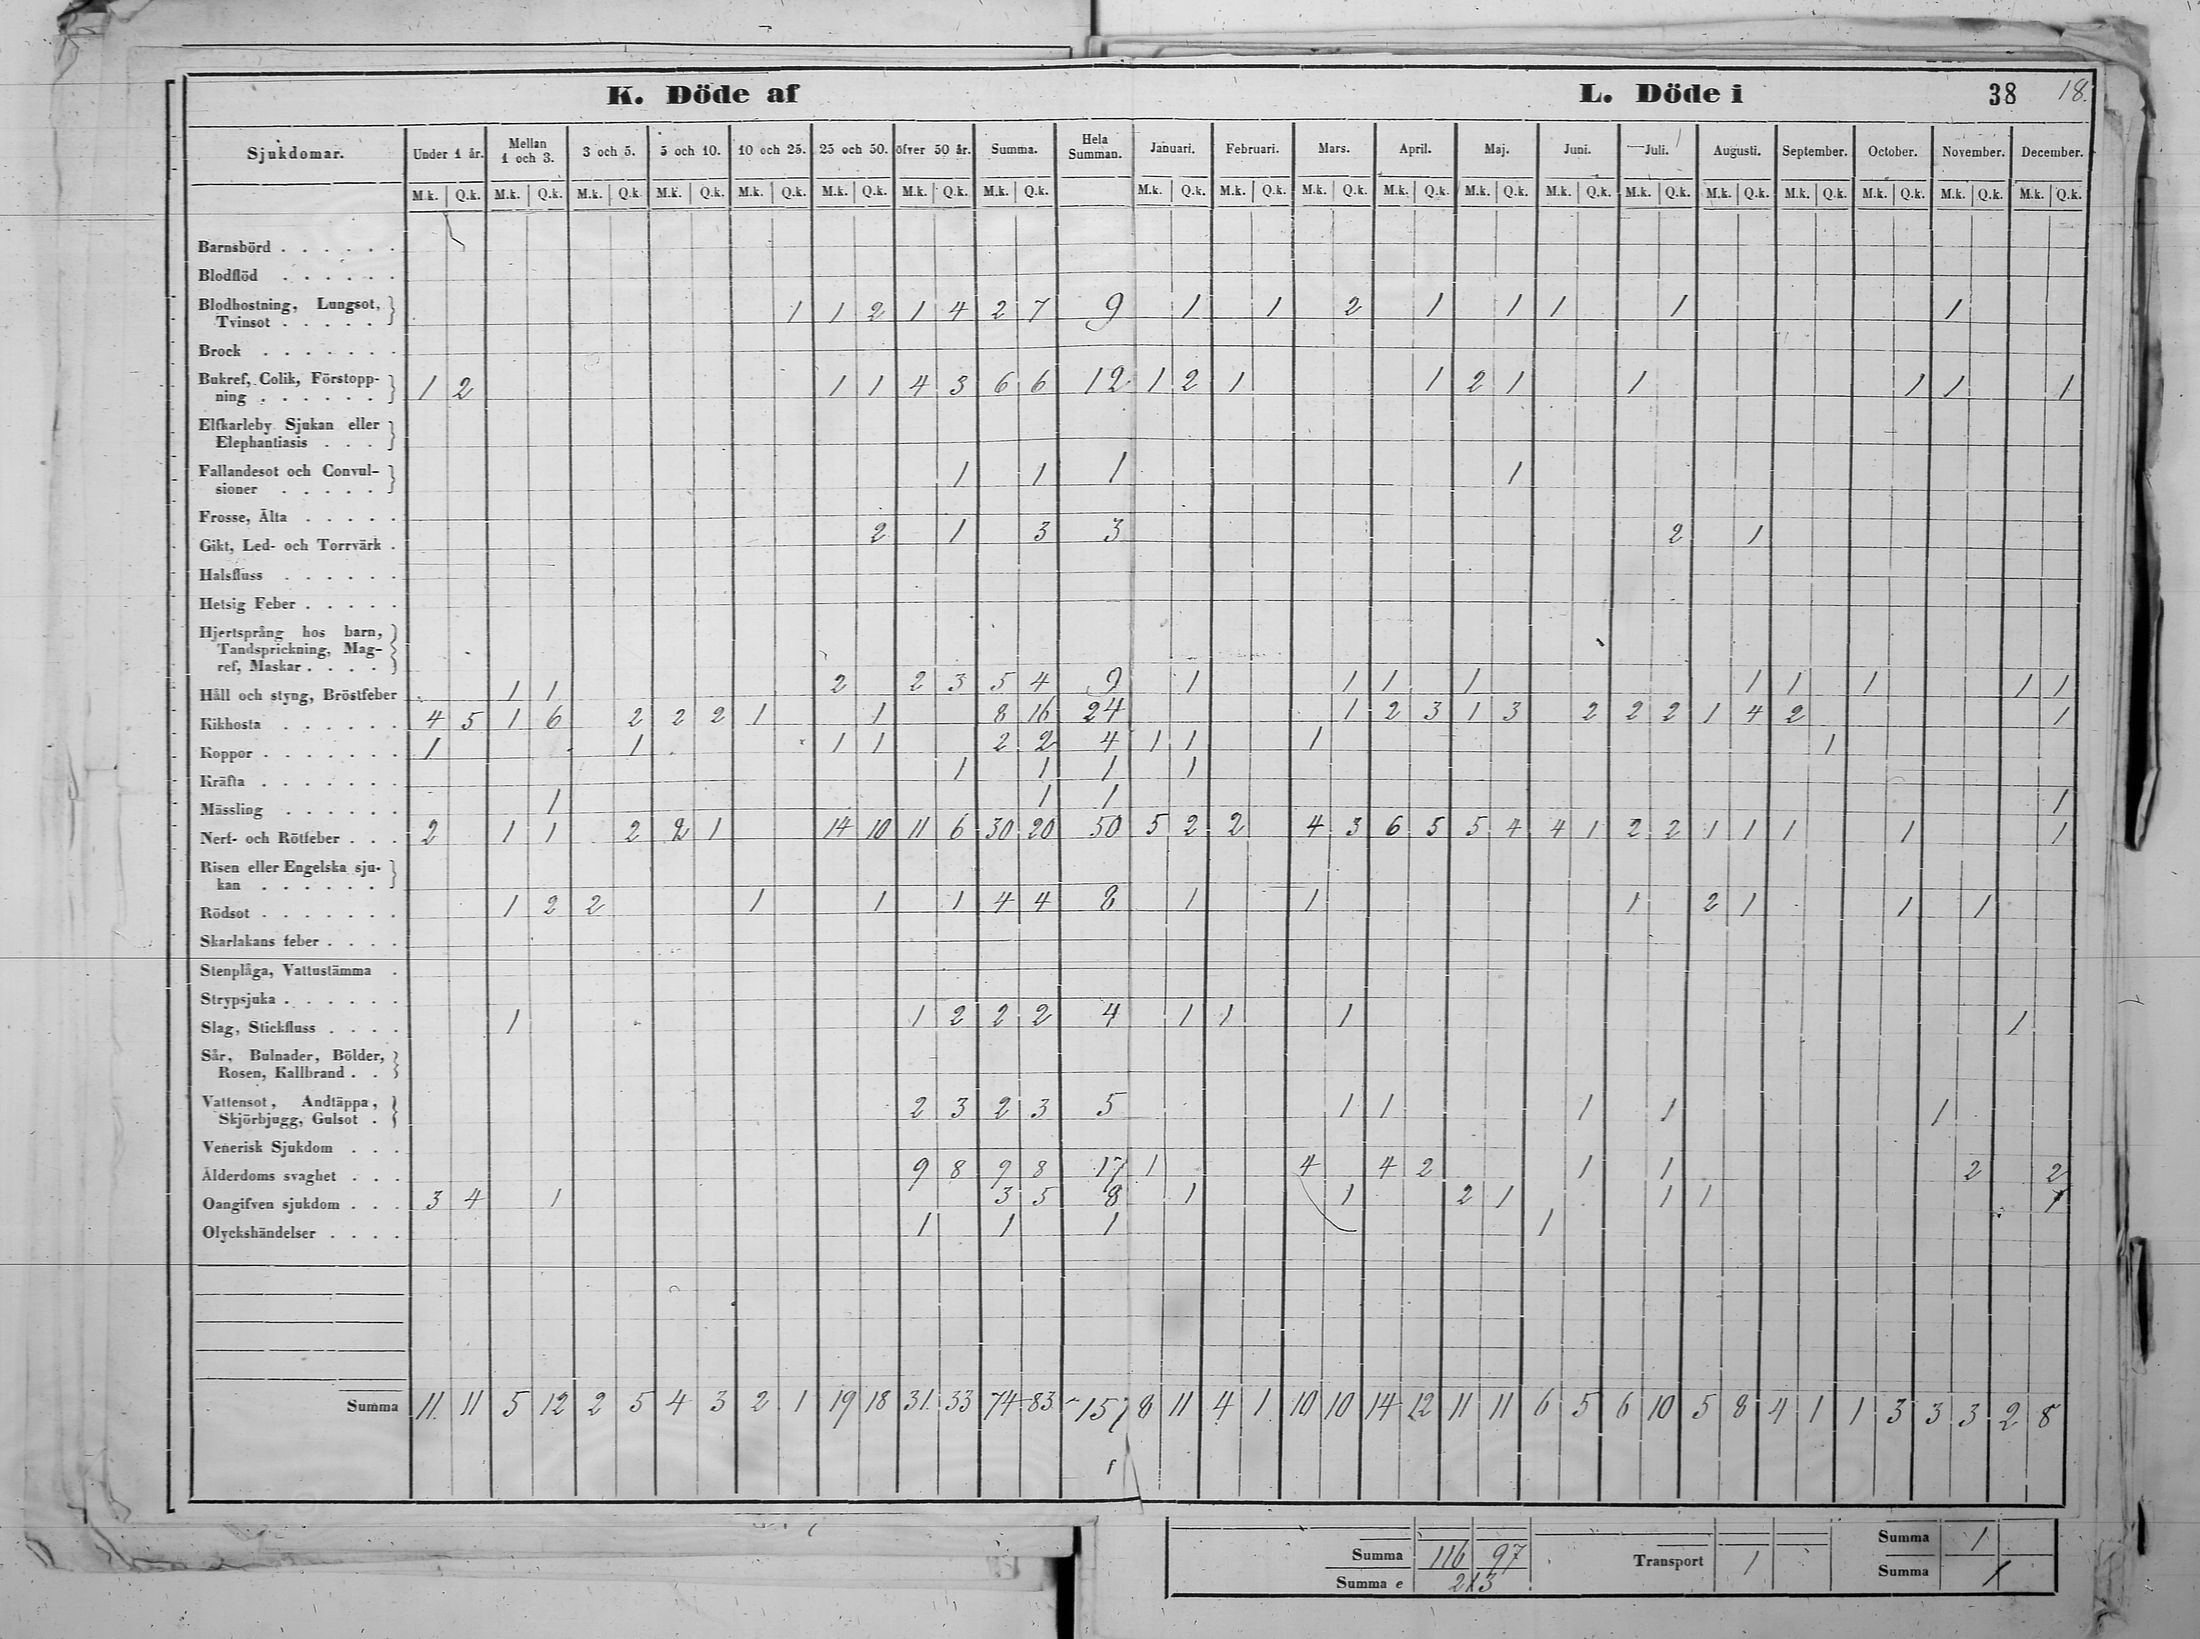 K. Döde af L. Döde i 38 18.
Sjukdomar. Under 1 år. Mellan 1 och 3. 3 och 5. 5 och 10. 10 och 25. 25 och 50. öfver 50 år. Summa. Hela Summan. Januari. Februari. Mars. April. Maj. Juni. Juli. Augusti. September. October. November. December.
M.k. Q.k. M.k. Q.k. M.k. Q.k. M.k. Q.k. M.k. Q.k. M.k. Q.k. M.k. Q.k. M.k. Q.k. M.k. Q.k. M.k. Q.k. M.k. Q.k. M.k. Q.k. M.k. Q.k. M.k. Q.k. M.k. Q.k. M.k. Q.k. M.k. Q.k. M.k. Q.k. M.k. Q.k. M.k. Q.k.
Barnsbörd . . . . . .
Blodflöd . . . . . .
Blodhostning, Lungsot,
Tvinsot . . . . . 1 1 2 1 4 2 7 9 1 1 2 1 1 1 1 1
Brock . . . . . . .
Bukref, Colik, Förstopp-
ning . . . . . . 1 2 1 1 4 3 6 6 12 1 2 1 1 2 1 1 1 1 1
Elfkarleby Sjukan eller
Elephantiasis . . .
Fallandesot och Convul-
sioner . . . . . 1 1 1 1
Frosse, Älta . . . . .
Gikt, Led- och Torrvärk . 2 1 3 3 2 1
Halsfluss . . . . . .
Hetsig Feber . . . . .
Hjertsprång hos barn,
Tandsprickning, Mag-
ref, Maskar . . . .
Håll och styng, Bröstfeber 1 1 2 2 3 5 4 9 1 1 1 1 1 1 1 1 1
Kikhosta . . . . . . 4 5 1 6 2 2 2 1 1 8 16 24 1 2 3 1 3 2 2 2 1 4 2 1
Koppor . . . . . . . 1 1 1 1 2 2 4 1 1 1 1
Kräfta . . . . . . . 1 1 1 1
Mässling . . . . . . 1 1 1 1
Nerf- och Rötfeber . . . 2 1 1 2 2 1 14 10 11 6 30 20 50 5 2 2 4 3 6 5 5 4 4 1 2 2 1 1 1 1 1
Risen eller Engelska sju-
kan . . . . . .
Rödsot . . . . . . . 1 2 2 1 1 1 4 4 8 1 1 1 2 1 1 1
Skarlakans feber . . . .
Stenplåga, Vattustämma .
Strypsjuka . . . . . .
Slag, Stickfluss . . . . 1 1 2 2 2 4 1 1 1 1
Sår, Bulnader, Bölder,
Rosen, Kallbrand . .
Vattensot, Andtäppa,
Skjörbjugg, Gulsot . 2 3 2 3 5 1 1 1 1 1
Venerisk Sjukdom . . .
Ålderdoms svaghet . . . 9 8 9 8 17 1 4 4 2 1 1 2 2
Oangifven sjukdom . . . 3 4 1 3 5 8 1 1 2 1 1 1 1
Olyckshändelser . . . . 1 1 1 1
Summa 11 11 5 12 2 5 4 3 2 1 19 18 31 33 74 83 157 8 11 4 1 10 10 14 12 11 11 6 5 6 10 5 8 4 1 1 3 3 3 2 8
Summa 116 97 Transport 1 Summa 1
Summa e 213 Summa 1